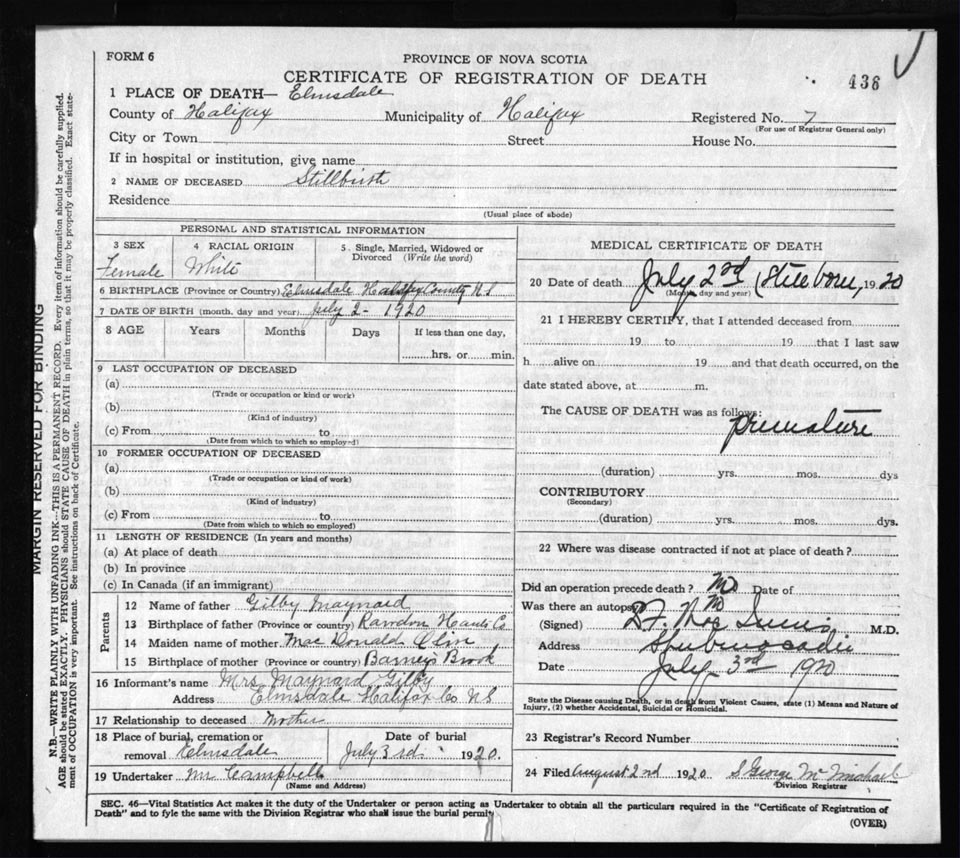 FORM 6
PROVINCE OF NOVA SCOTIA
CERTIFICATE OF REGISTRATION OF DEATH
436
1 PLACE OF DEATH— Elmsdale
County of Halifax Municipality of Halifax Registered No. 7
(For use of Registrar General only)
City or Town Street House No.
If in hospital or institution, give name
2 NAME OF DECEASED Stillbirth
Residence
(Usual place of abode)
PERSONAL AND STATISTICAL INFORMATION
3 SEX 4 RACIAL ORIGIN 5. Single, Married, Widowed or
Divorced (Write the word)
Female White
6 BIRTHPLACE (Province or Country) Elmsdale Halifax County N S
7 DATE OF BIRTH (month, day and year) July 2 - 1920
8 AGE Years Months Days If less than one day,
hrs. or min.
9 LAST OCCUPATION OF DECEASED
(a)
(Trade or occupation or kind or work)
(b)
(Kind of industry)
(c) From to
(Date from which to which so employed)
10 FORMER OCCUPATION OF DECEASED
(a)
(Trade or occupation or kind of work)
(b)
(Kind of industry)
(c) From to
(Date from which to which so employed)
11 LENGTH OF RESIDENCE (In years and months)
(a) At place of death
(b) In province
(c) In Canada (if an immigrant)
Parents
12 Name of father Gilby Maynard
13 Birthplace of father (Province or country) Rawdon Hants Co
14 Maiden name of mother Mac Donald
15 Birthplace of mother (Province or country) Barneys Brook
16 Informant's name Mrs Maynard Gilby
Address Elmsdale Halifax Co N S
17 Relationship to deceased Mother
18 Place of burial, cremation or Date of burial
removal Elmsdale July 3rd 1920.
19 Undertaker Mr Campbell
(Name and Address)
MEDICAL CERTIFICATE OF DEATH
20 Date of death July 2nd (Stillborn, 1920
(Month, day and year)
21 I HEREBY CERTIFY, that I attended deceased from
19 to 19 that I last saw
h alive on 19 and that death occurred, on the
date stated above, at m.
The CAUSE OF DEATH was as follows:
Premature
(duration) yrs. mos. dys
CONTRIBUTORY
(Secondary)
(duration) yrs. mos. dys.
22 Where was disease contracted if not at place of death?
Did an operation precede death? No Date of
Was there an autopsy No
(Signed) M.D.
Address Shubenacadie
Date July 3rd 1920
State the Disease causing Death, or in death from Violent Causes, state (1) Means and Nature of
Injury, (2) whether Accidental, Suicidal or Homicidal.
23 Registrar's Record Number
24 Filed August 2nd 1920 S George
Division Registrar
SEC. 46—Vital Statistics Act makes it the duty of the Undertaker or person acting as Undertaker to obtain all the particulars required in the "Certificate of Registration of
Death" and to fyle the same with the Division Registrar who shall issue the burial permit
(OVER)
MARGIN RESERVED FOR BINDING
N.B.—WRITE PLAINLY WITH UNFADING INK—THIS IS A PERMANENT RECORD. Every item of information should be carefully supplied.
AGE should be stated EXACTLY. PHYSICIANS should STATE CAUSE OF DEATH in plain terms, so that it may be properly classified. Exact state-
ment of OCCUPATION is very important. See instructions on back of Certificate.